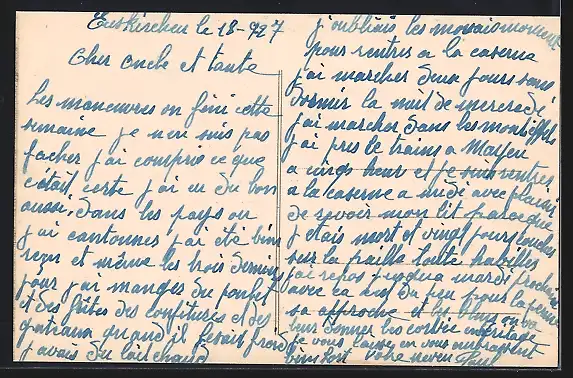 Euskirchen le 18-9 27
Cher oncle et tante
Les manœuvres on fini cette
semaine je n'en suis pas
facher j'ai compris ce que
c'était certe j'ai eu du bon
aussi, dans les pays ou
j'ai cantonnes j'ai été bien
reçu et même les trois derniers
jours j'ai manges du poulet
et des frites des confitures et des
gateaux quand il fesait froid
j'avais du lait chaud
j'oubliais les mauvais moments
pour rentres a la caserne
j'ai marcher deux jours sans
dormir la nuit de mercredi
j'ai marcher dans les monts eiffels
j'ai pris le trains a Mayen
a cinqs heur et je suis rentres
a la caserne a midi avec plaisir
de revoir mon lit parceque
j'etais mort et vingt jours couches
sur la pailla toute habilles
j'ai repos jusqua mardi prochain
avec ca on du peu pour la ferme
sa approche et les bleus on va
leur donner les corbie en héritage
je vous laisse en vous embrassant
bien fort votre neveu Paul